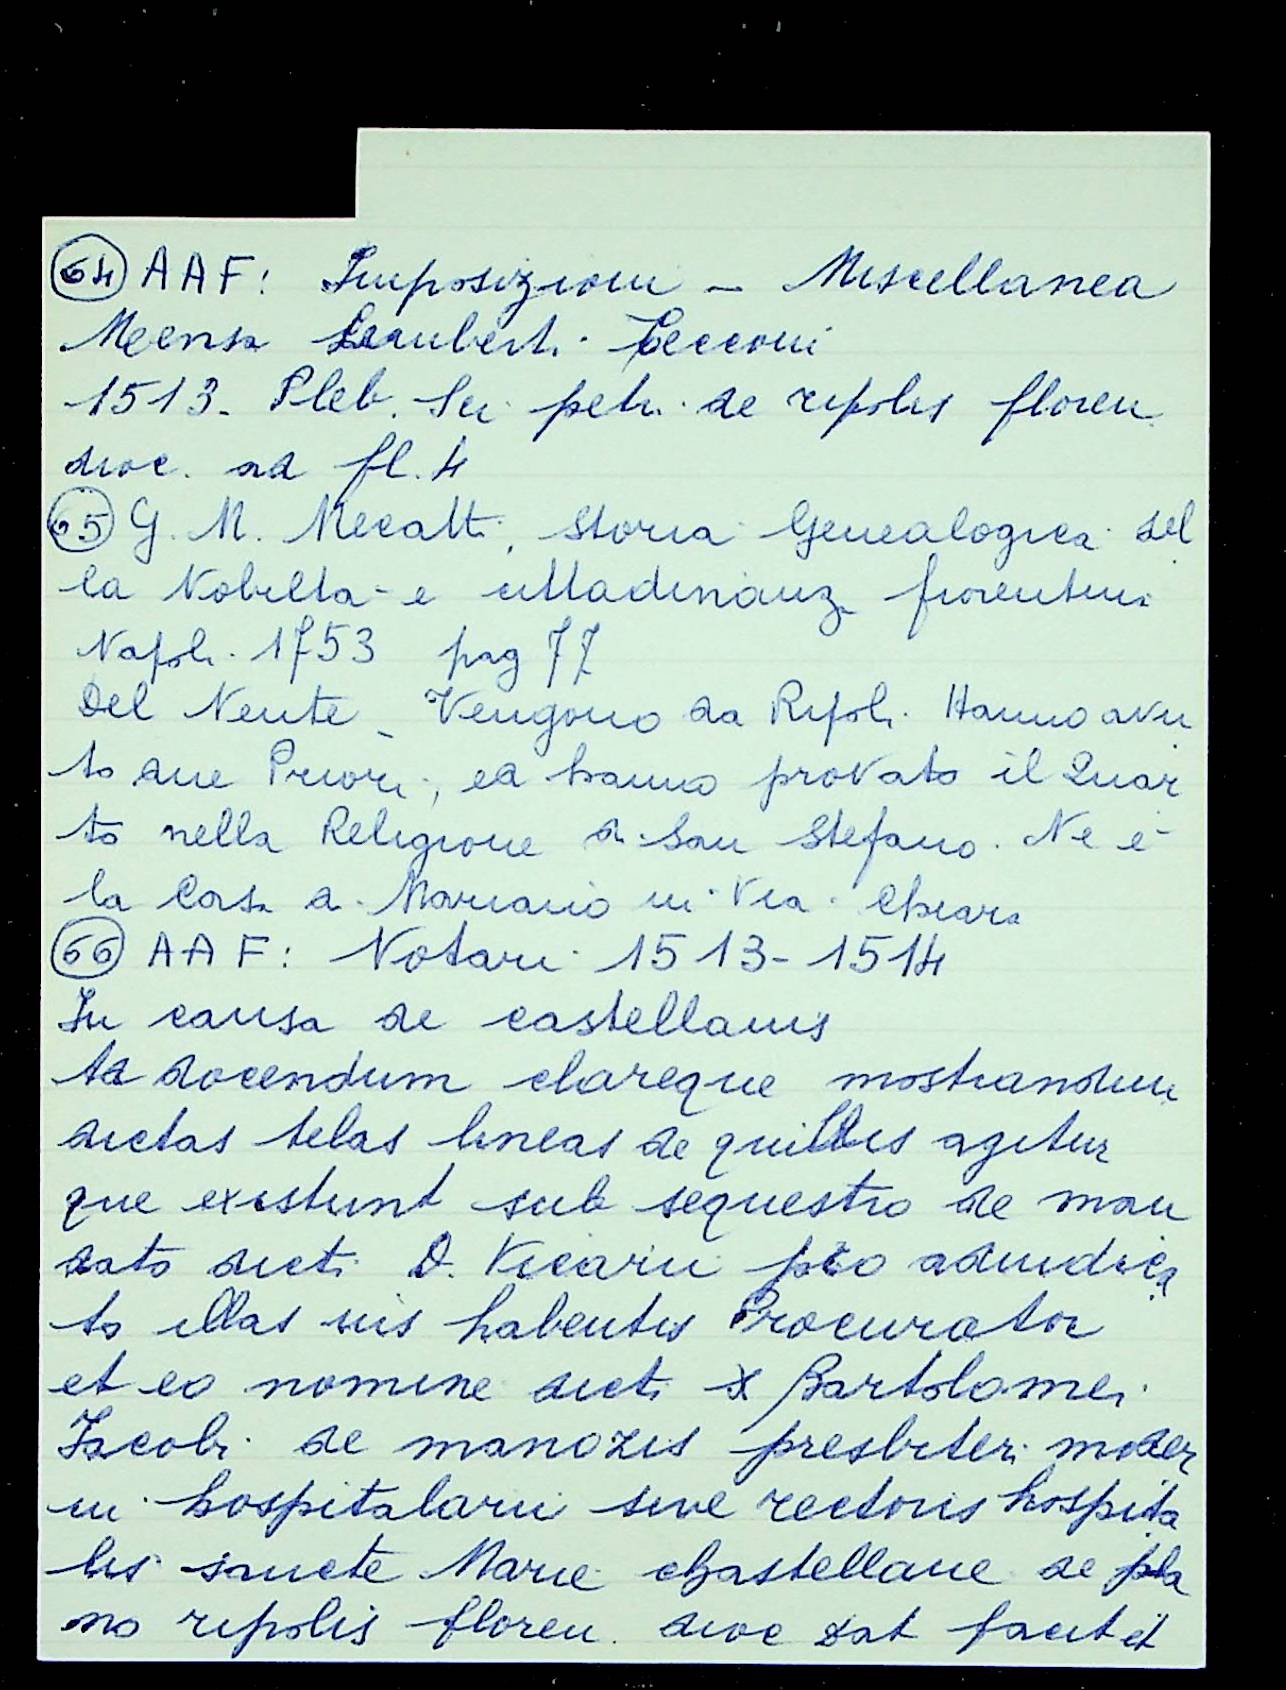 64 AAF: Imposizioni - Miscellanea
Mensa Lamberti. Cecconi
1513. Pleb. Sci. petri. de ripolis floren.
dioc. ad fl. 4
65 G. M. Mecatti, Storia Genealogica del
la Nobiltà e cittadinanza fiorentina
Napoli. 1753 pag 77
Del Nente - Vengono da Ripoli. Hanno avu
to due Priori, ed hanno provato il Quar
to nella Religione di San Stefano. Ne è
la Casa a Mariano in Via Chiara
66 AAF: Notari 1513-1514
In causa de castellanis
Ad docendum clareque mostrandum
dictas telas lineas de quibus agitur
que existunt sub sequestro de man
dato dicti D. Vicarii pro adiudica
to illas ius habentis Procurator
et eo nomine dicti Bartolomei
Jacobi de manozis presbiteri moder
ni hospitalarii sive rectoris hospita
lis sancte Marie chastellane de pla
no ripolis floren. dioc dat facit et